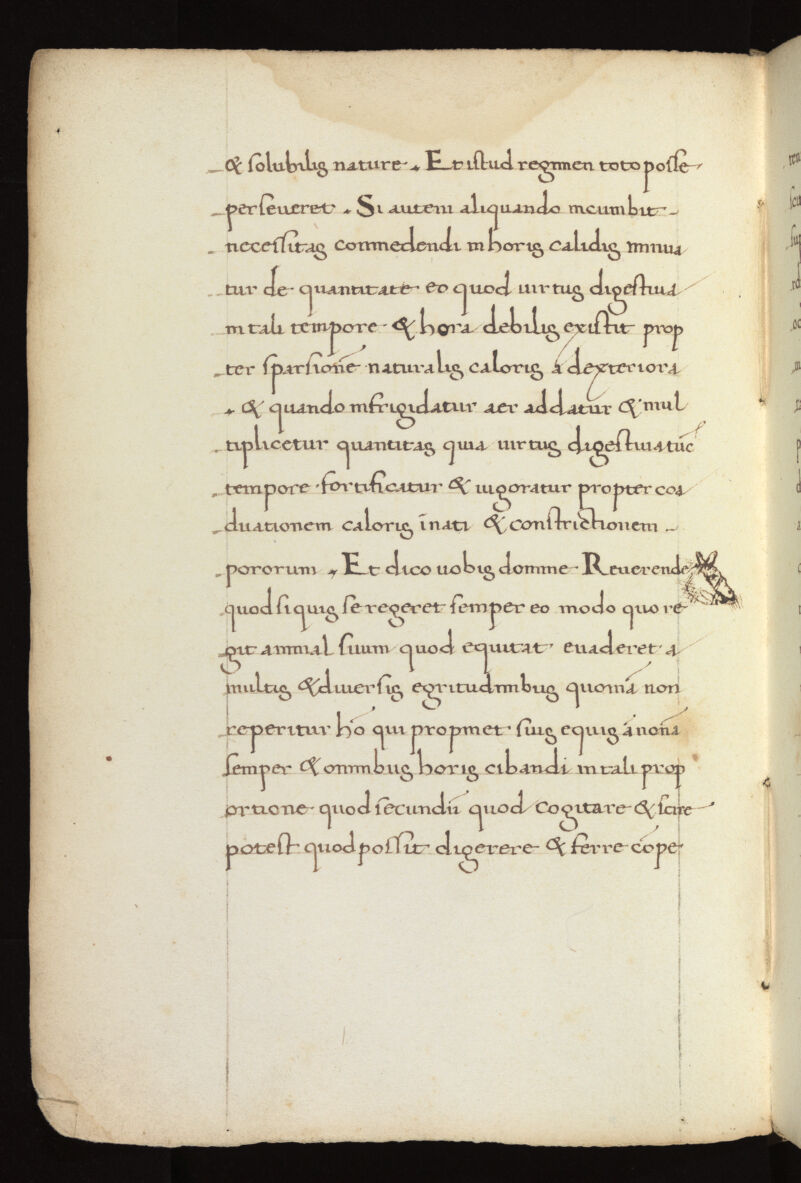 & solubilis nature. Et istud regimen toto posse
perseueret. Si autem aliquando incumbit
necessitas commedendi in horis calidis minua
tur de quantitate eo quod uirtus digestiua
in tali tempore & hora debilis existit prop
ter sparsionē naturalis caloris ad exteriora
. & quando infrigidatur aer addatur & mul
tiplicetur quantitas quia uirtus digestiua tūc
tempore fortificatur & uigoratur propter coa
duationem caloris īnati & constrictionem
pororum. Et dico uobis domine Reuerende
quod si quis se regeret semper eo modo quo re
git animal suum quod equitat euaderet a
multis & diuersis egritudinibus quoniā non
reperitur hō qui propinet suis equis ānonā
semper & omnibus horis cibandi in tali prop
ortione quod secundū quod cogitare & scire
potest quod possit digerere & ferre cōpe